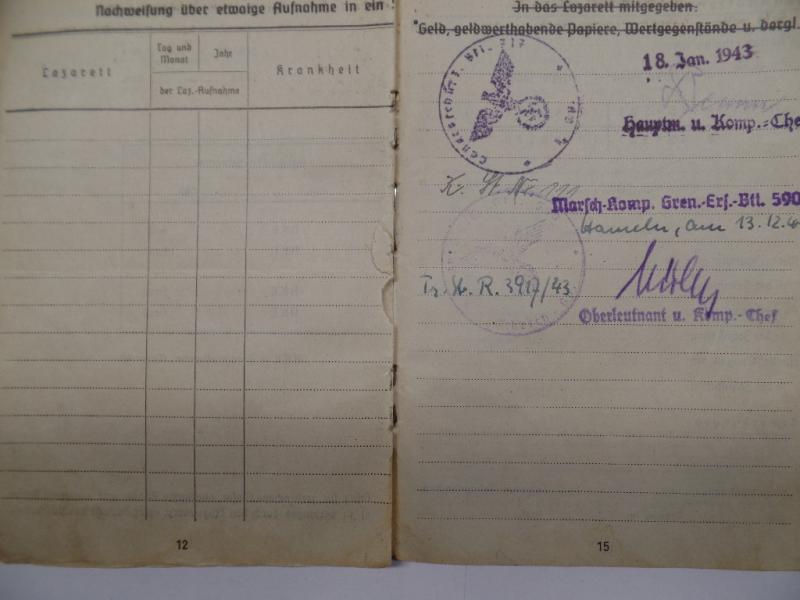 Nachweisung über etwaige Aufnahme in ein
Lazarett
Tag und
Monat
Jahr
der Laz.-Aufnahme
Krankheit
12
In das Lazarett mitgegeben:
Geld, geldwerthabende Papiere, Wertgegenstände u. dergl.
Btl. 717
18. Jan. 1943
Hauptm. u. Komp.-Che
Marsch-Komp. Gren.-Ers.-Btl. 590
Hameln, am 13.12.4
R. 3917/43
Oberleutnant u. Komp.-Chef
15